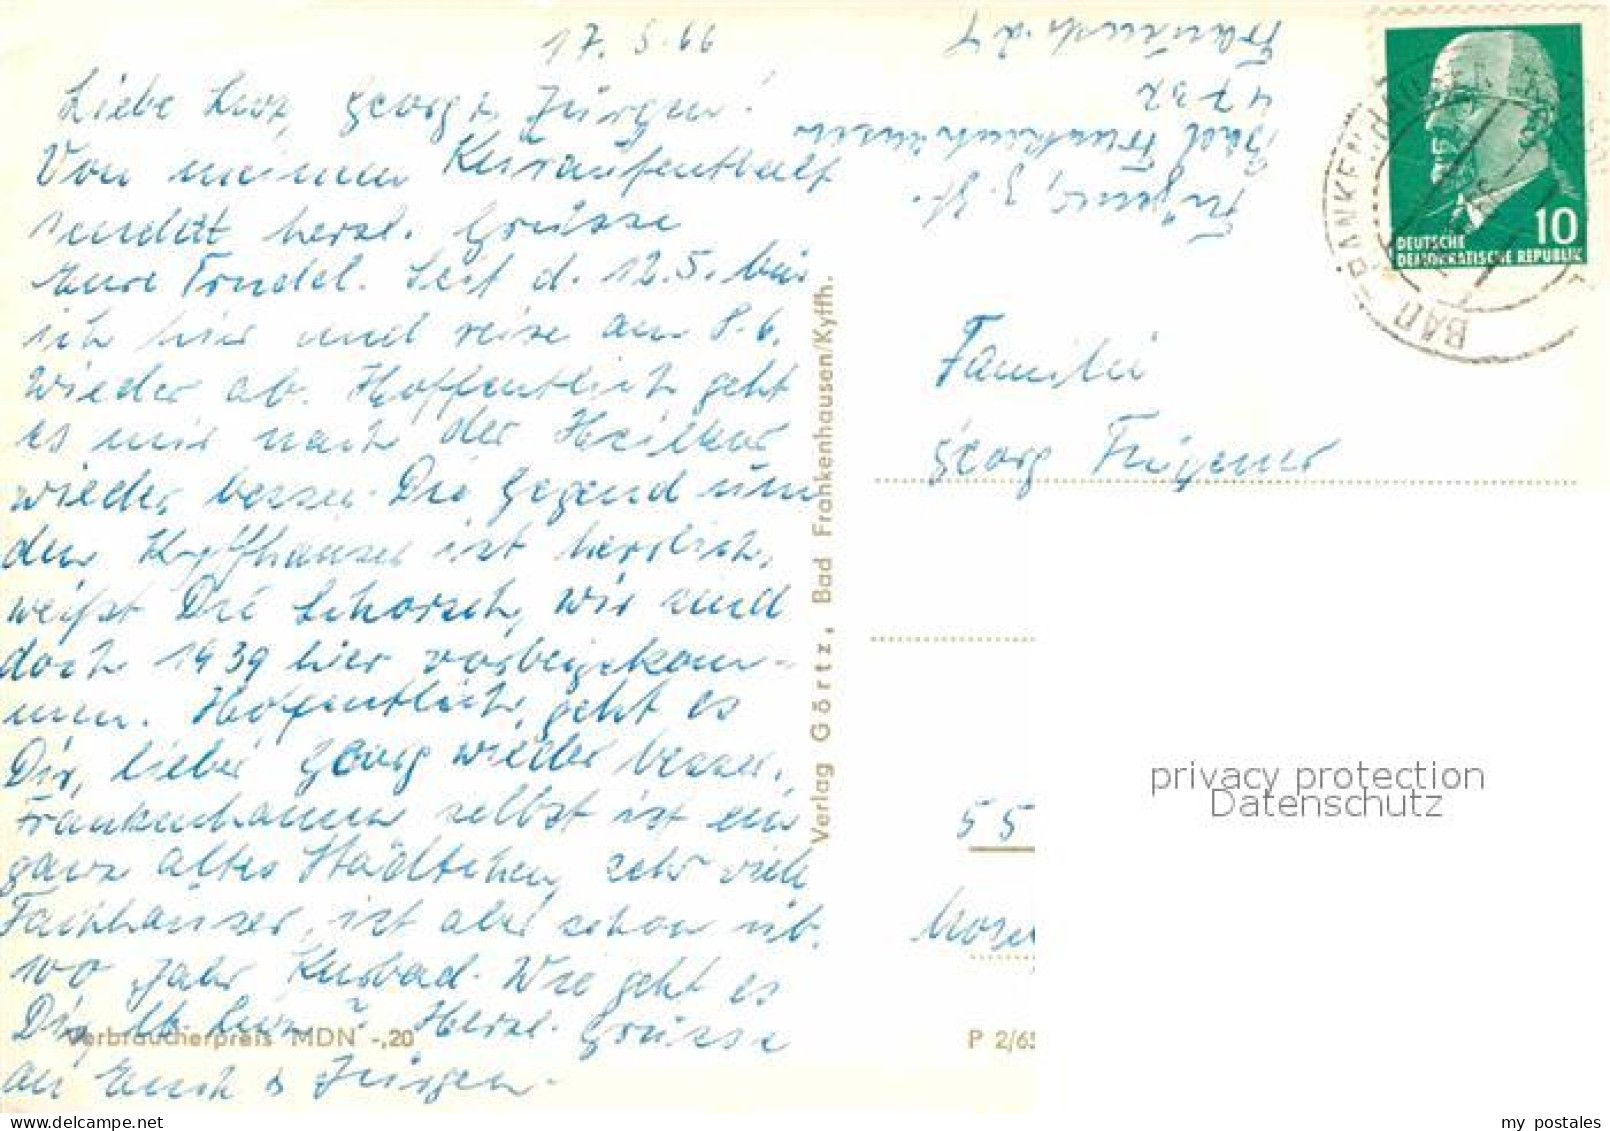 17. 5. 66
Liebe Lux, Georg & Jürgen!
Von meinem Kuraufenthalt
sendet herzl. Grüsse
Eure Trudel. Seit d. 12.5. bin
ich hier und reise am 8.6.
wieder ab. Hoffentlich geht
es mir nach der Heilkur
wieder besser. Die Gegend um
den Kyffhäuser ist herrlich,
weißt Du Schorsch, wir sind
doch 1939 hier vorbeigekom-
men. Hoffentlich geht es
Dir, lieber Georg wieder besser.
Frankenhausen selbst ist ein
ganz altes Städtchen, sehr viele
Fachhäuser, ist aber schon üb.
100 Jahr Kurbad. Wie geht es
Dir, lb. Lux? Herzl. Grüsse
an Euch & Jürgen.
Verbraucherpreis MDN -,20
Verlag Görtz, Bad Frankenhausen/Kyffh.
z. Zt.
Bad Frankenhausen
4732
DEUTSCHE
DEMOKRATISCHE REPUBLIK
10
BAD FRANKENHAUSEN
Familie
Georg
55
P 2/65
privacy protection
Datenschutz
my postales